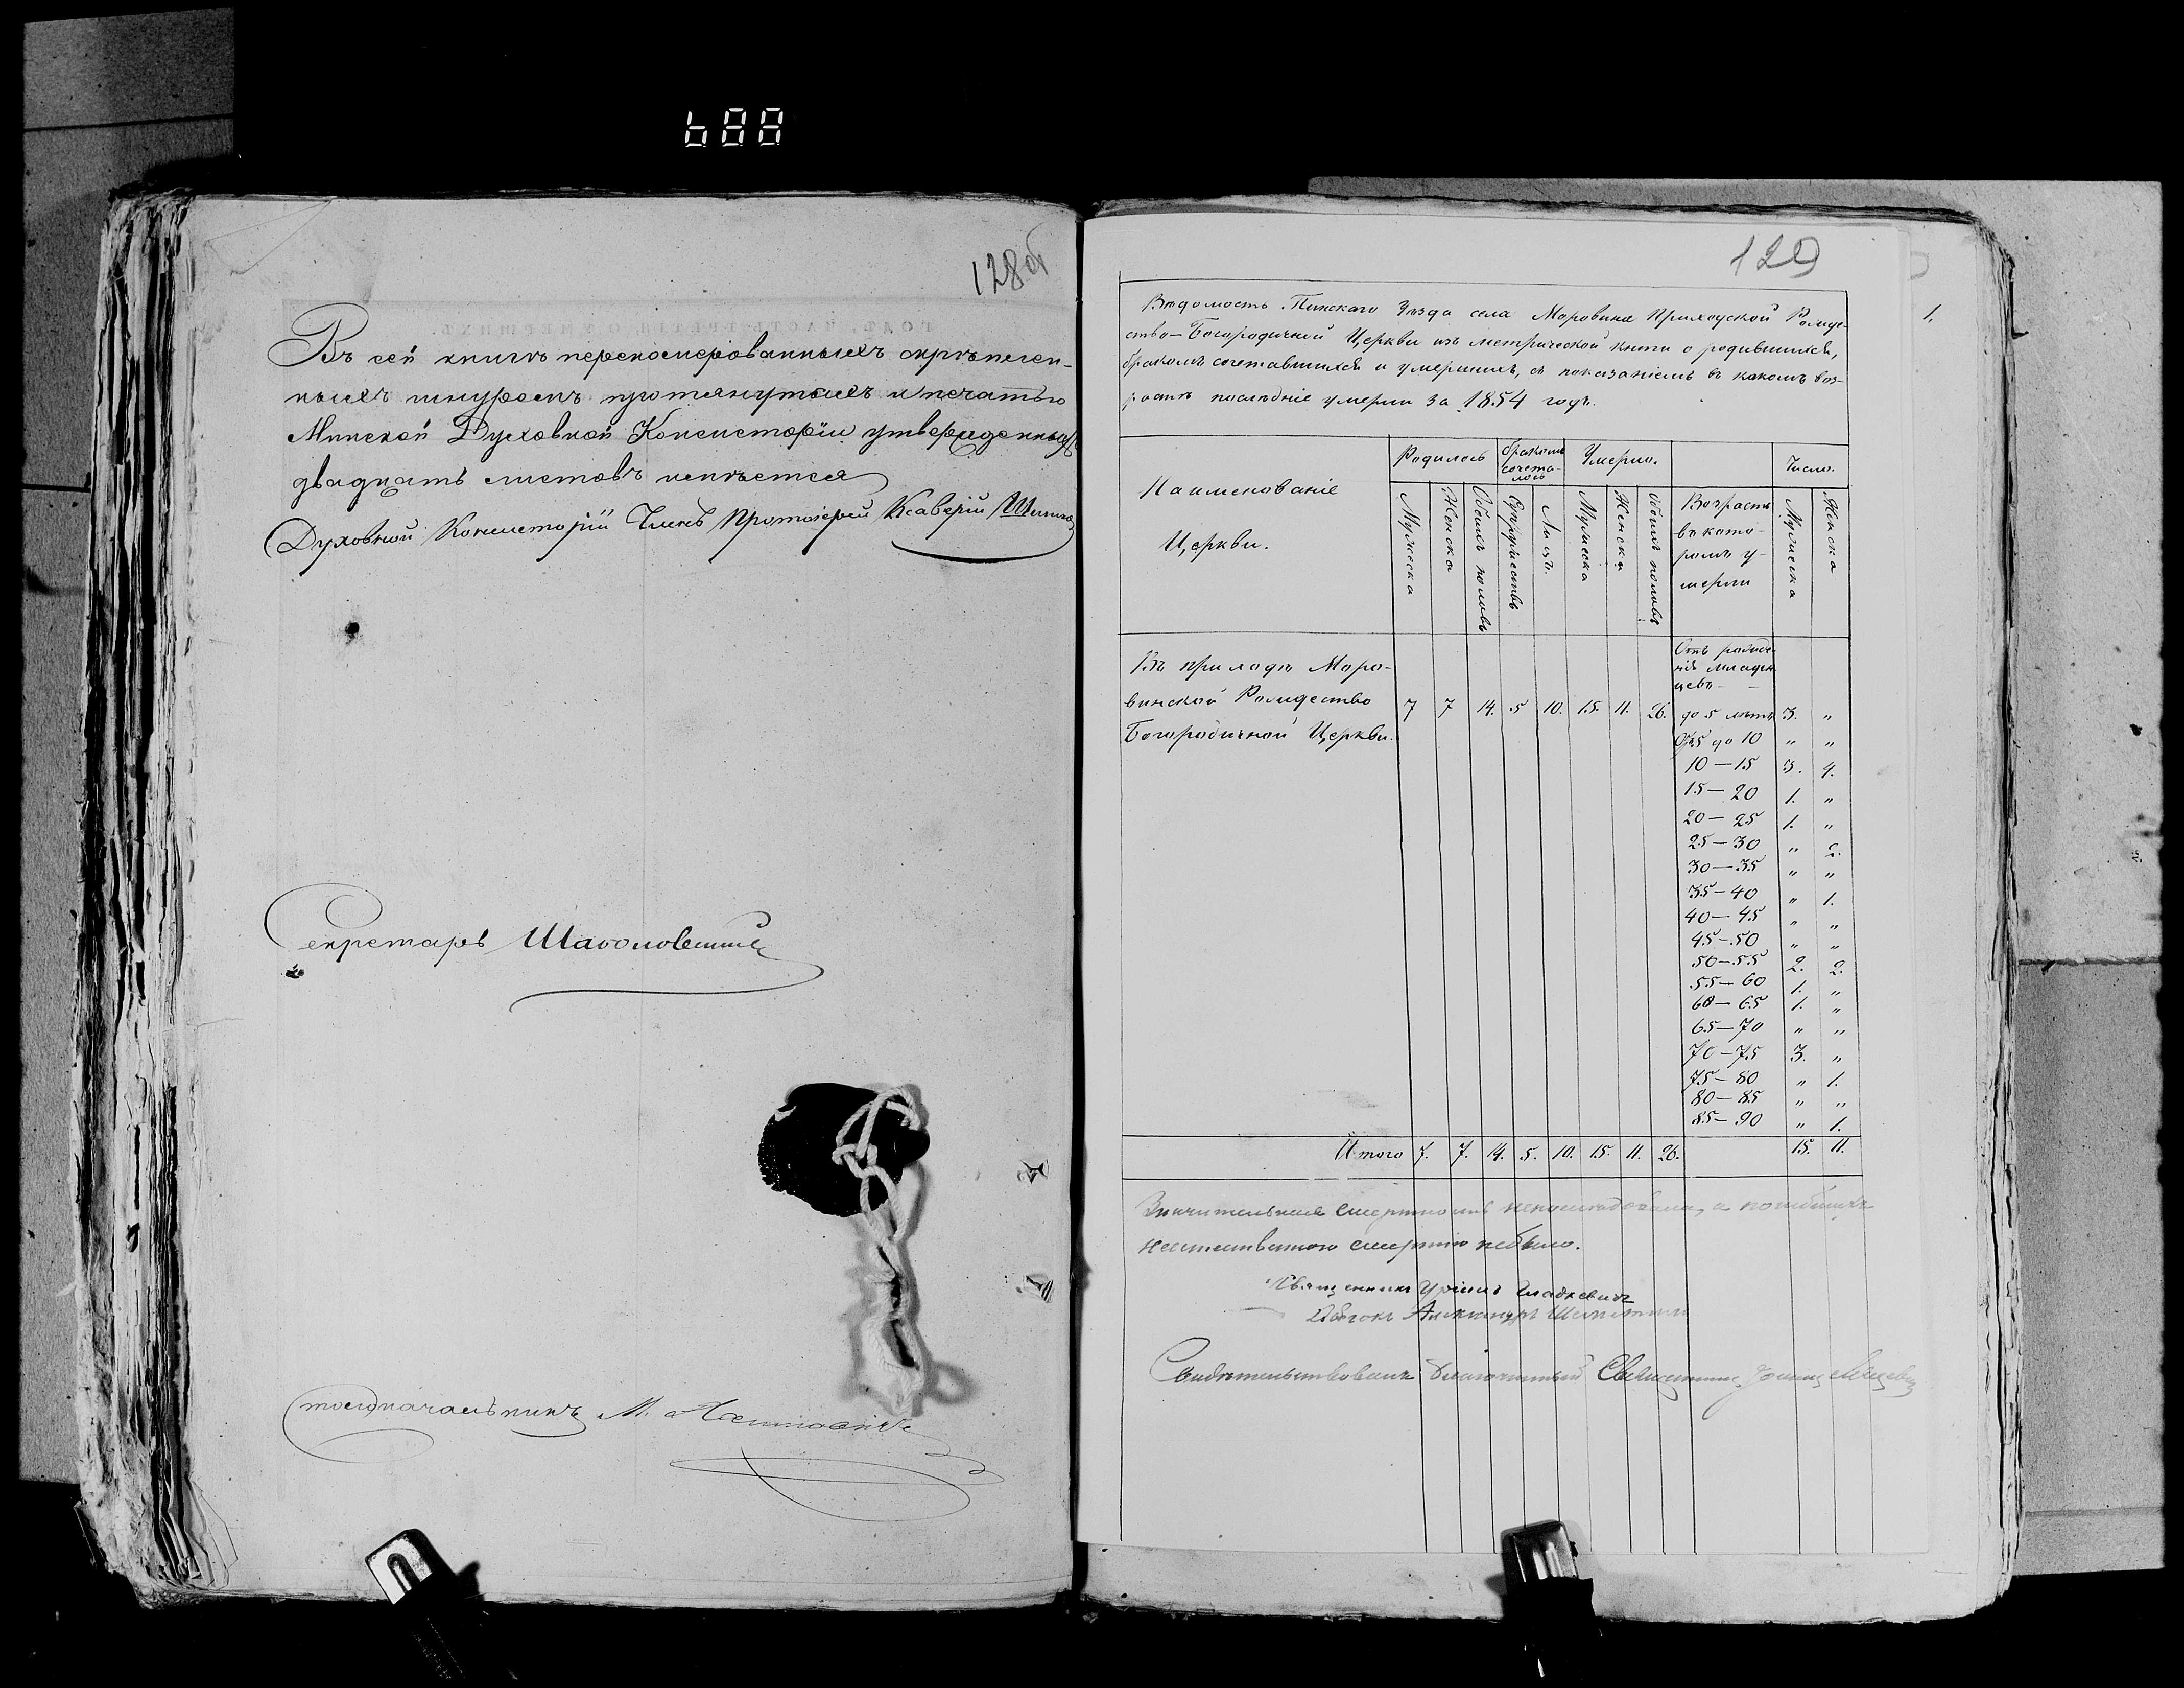 688
128об
Въ сей книгѣ перекомерованныхъ скрѣплен-
ныхъ шнуромъ протянутыхъ и печатью
Минской Духовной Консисторіи утвержденныхъ
двадцать листовъ имѣется
Духовной Консисторіи Членъ Протоіерей Ксаверій
Секретарь
Столоначальникъ М.
129
1.
Вѣдомость Пинскаго Уѣзда села Моровина Приходской Рожде-
ство-Богородичной Церкви изъ метрической книги о родившихся,
бракомъ сочетавшихся и умершихъ, съ показаніемъ въ какомъ воз-
растѣ послѣдніе умерли за 1854 годъ.
Наименованіе
Церкви.
Родилось
Бракомъ
сочета-
лось
Умерло.
Число.
Мужеска
Женска
Обоихъ половъ
Супружествъ
Лицъ.
Мужеска
Женска
Обоихъ половъ
Возрастъ
въ кото-
ромъ у-
мерли
Мужеска
Женска
Въ приходѣ Моро-
винской Рождество
Богородичной Церкви.
7 7 14. 5 10. 15. 11. 26.
Отъ рожде-
нія младен-
цевъ —
до 5 лѣтъ 3. "
Отъ 5 до 10 " "
10—15 3. 4.
15—20 1. "
20—25 1. "
25—30 " 2.
30—35 " "
35—40 " 1.
40—45 " "
45—50 " "
50—55 2. 2.
55—60 1. "
60—65 1. "
65—70 " "
70—75 3. "
75—80 " 1.
80—85 " "
85—90 " 1.
Итого 7. 7. 14. 5. 10. 15. 11. 26. 15. 11.
Значительная смертность а погибшихъ
неестественною смертію небыло.
Священникъ
Дьячокъ Александръ
Свидѣтельствовалъ Благочинный Священникъ